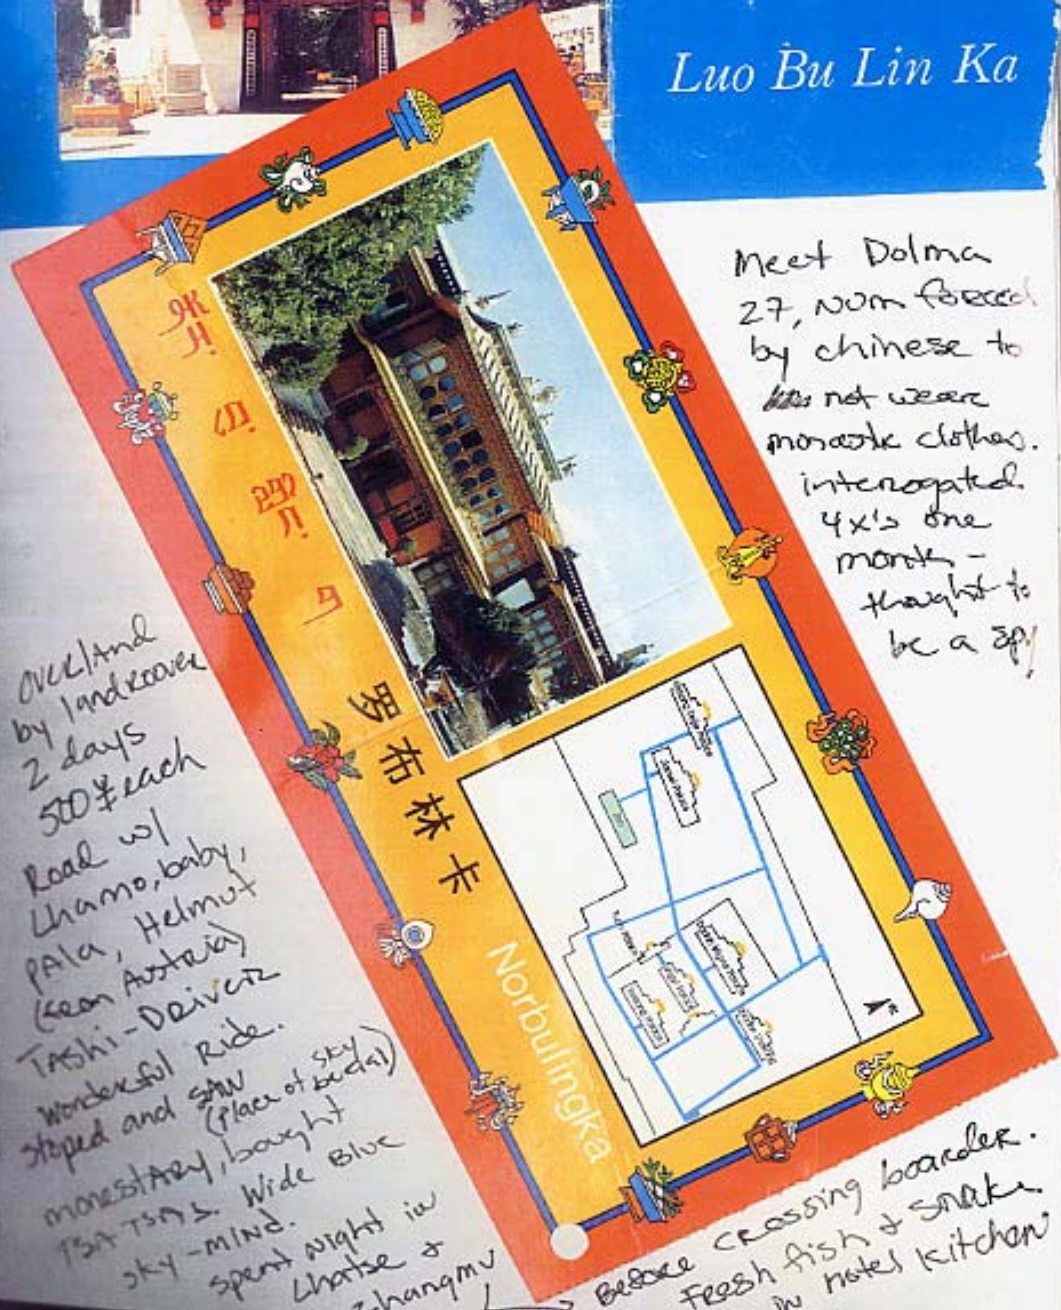 Luo Bu Lin Ka
Meet Dolma
27, Nun forced
by chinese to
not wear
monastic clothes.
interrogated
4x's one
month -
thought to
be a spy
罗布林卡
Norbulingka
OVERLAND
by landroover
2 days
500¥ each
Road w/
Lhamo, baby,
PALA, Helmut
(from Austria)
TAShi - DRIVER
Wonderful Ride.
stoped and SAW
(Place of sky burial)
monestARy, bought
TSA TSA'S. Wide Blue
sky - MIND.
spent night in
Lhatse +
zhangmu
Before crossing boarder.
Fresh fish + snake
in hotel kitchen